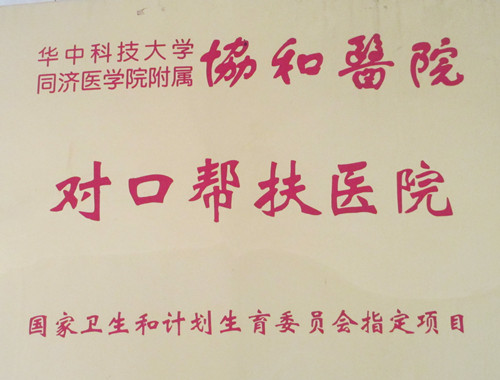 华中科技大学
同济医学院附属 協和醫院
对口帮扶医院
国家卫生和计划生育委员会指定项目